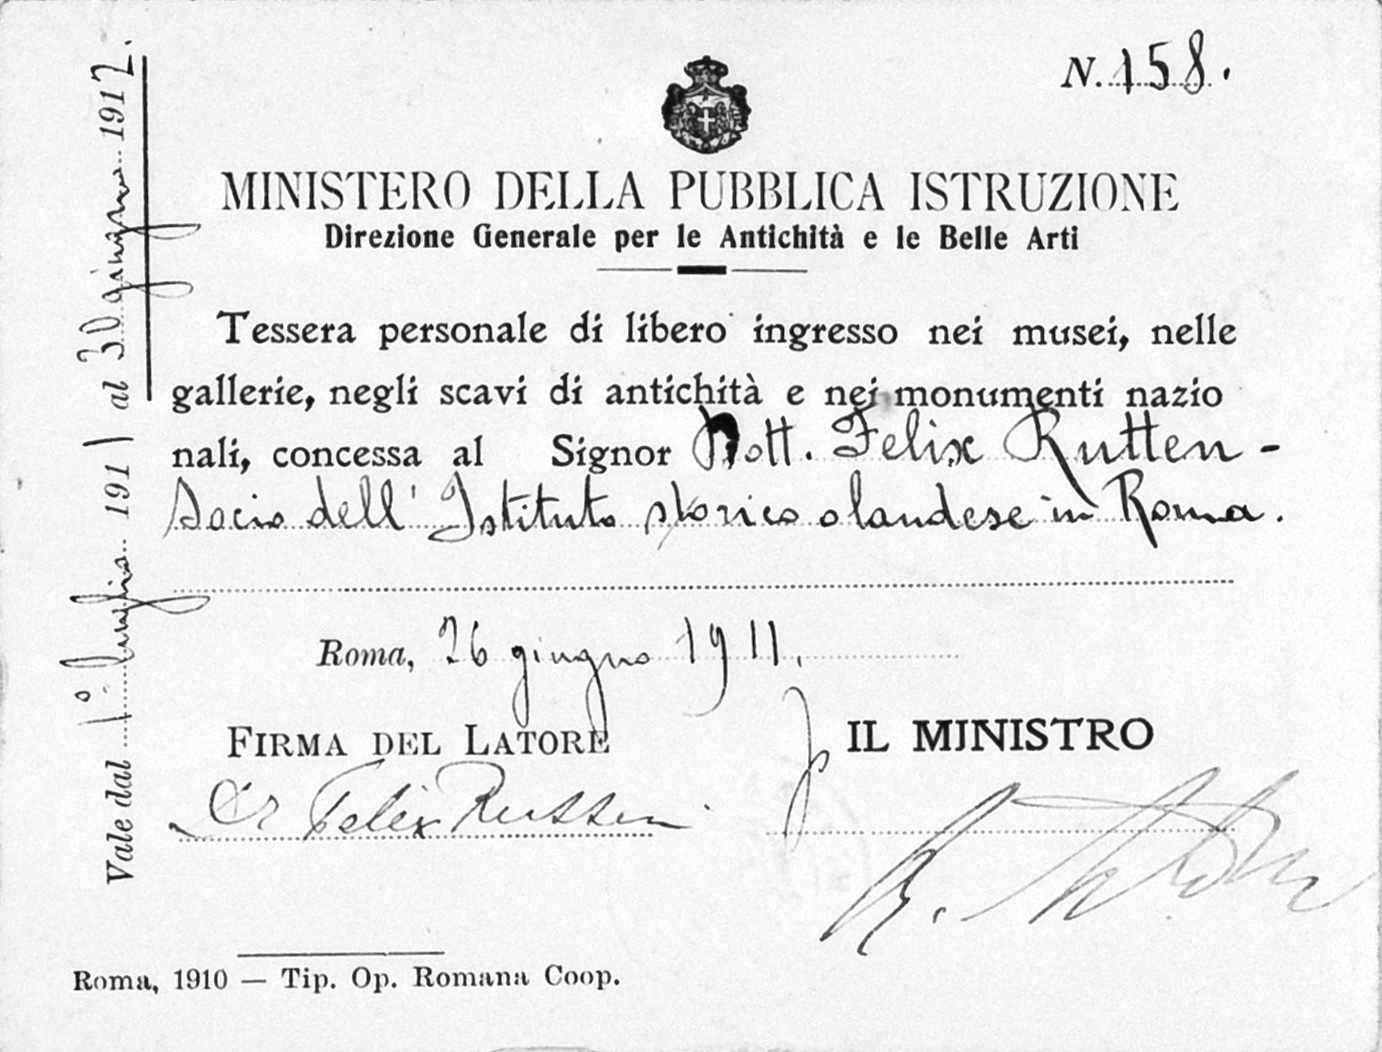 N. 158.
MINISTERO DELLA PUBBLICA ISTRUZIONE
Direzione Generale per le Antichità e le Belle Arti
Tessera personale di libero ingresso nei musei, nelle
gallerie, negli scavi di antichità e nei monumenti nazio
nali, concessa al Signor Dott. Felix Rutten -
Socio dell' Istituto storico olandese in Roma.
Roma, 26 giugno 1911.
FIRMA DEL LATORE
Dr Felix Rutten
IL MINISTRO
Roma, 1910 — Tip. Op. Romana Coop.
Vale dal 1° luglio 1911 al 30 giugno 1912.